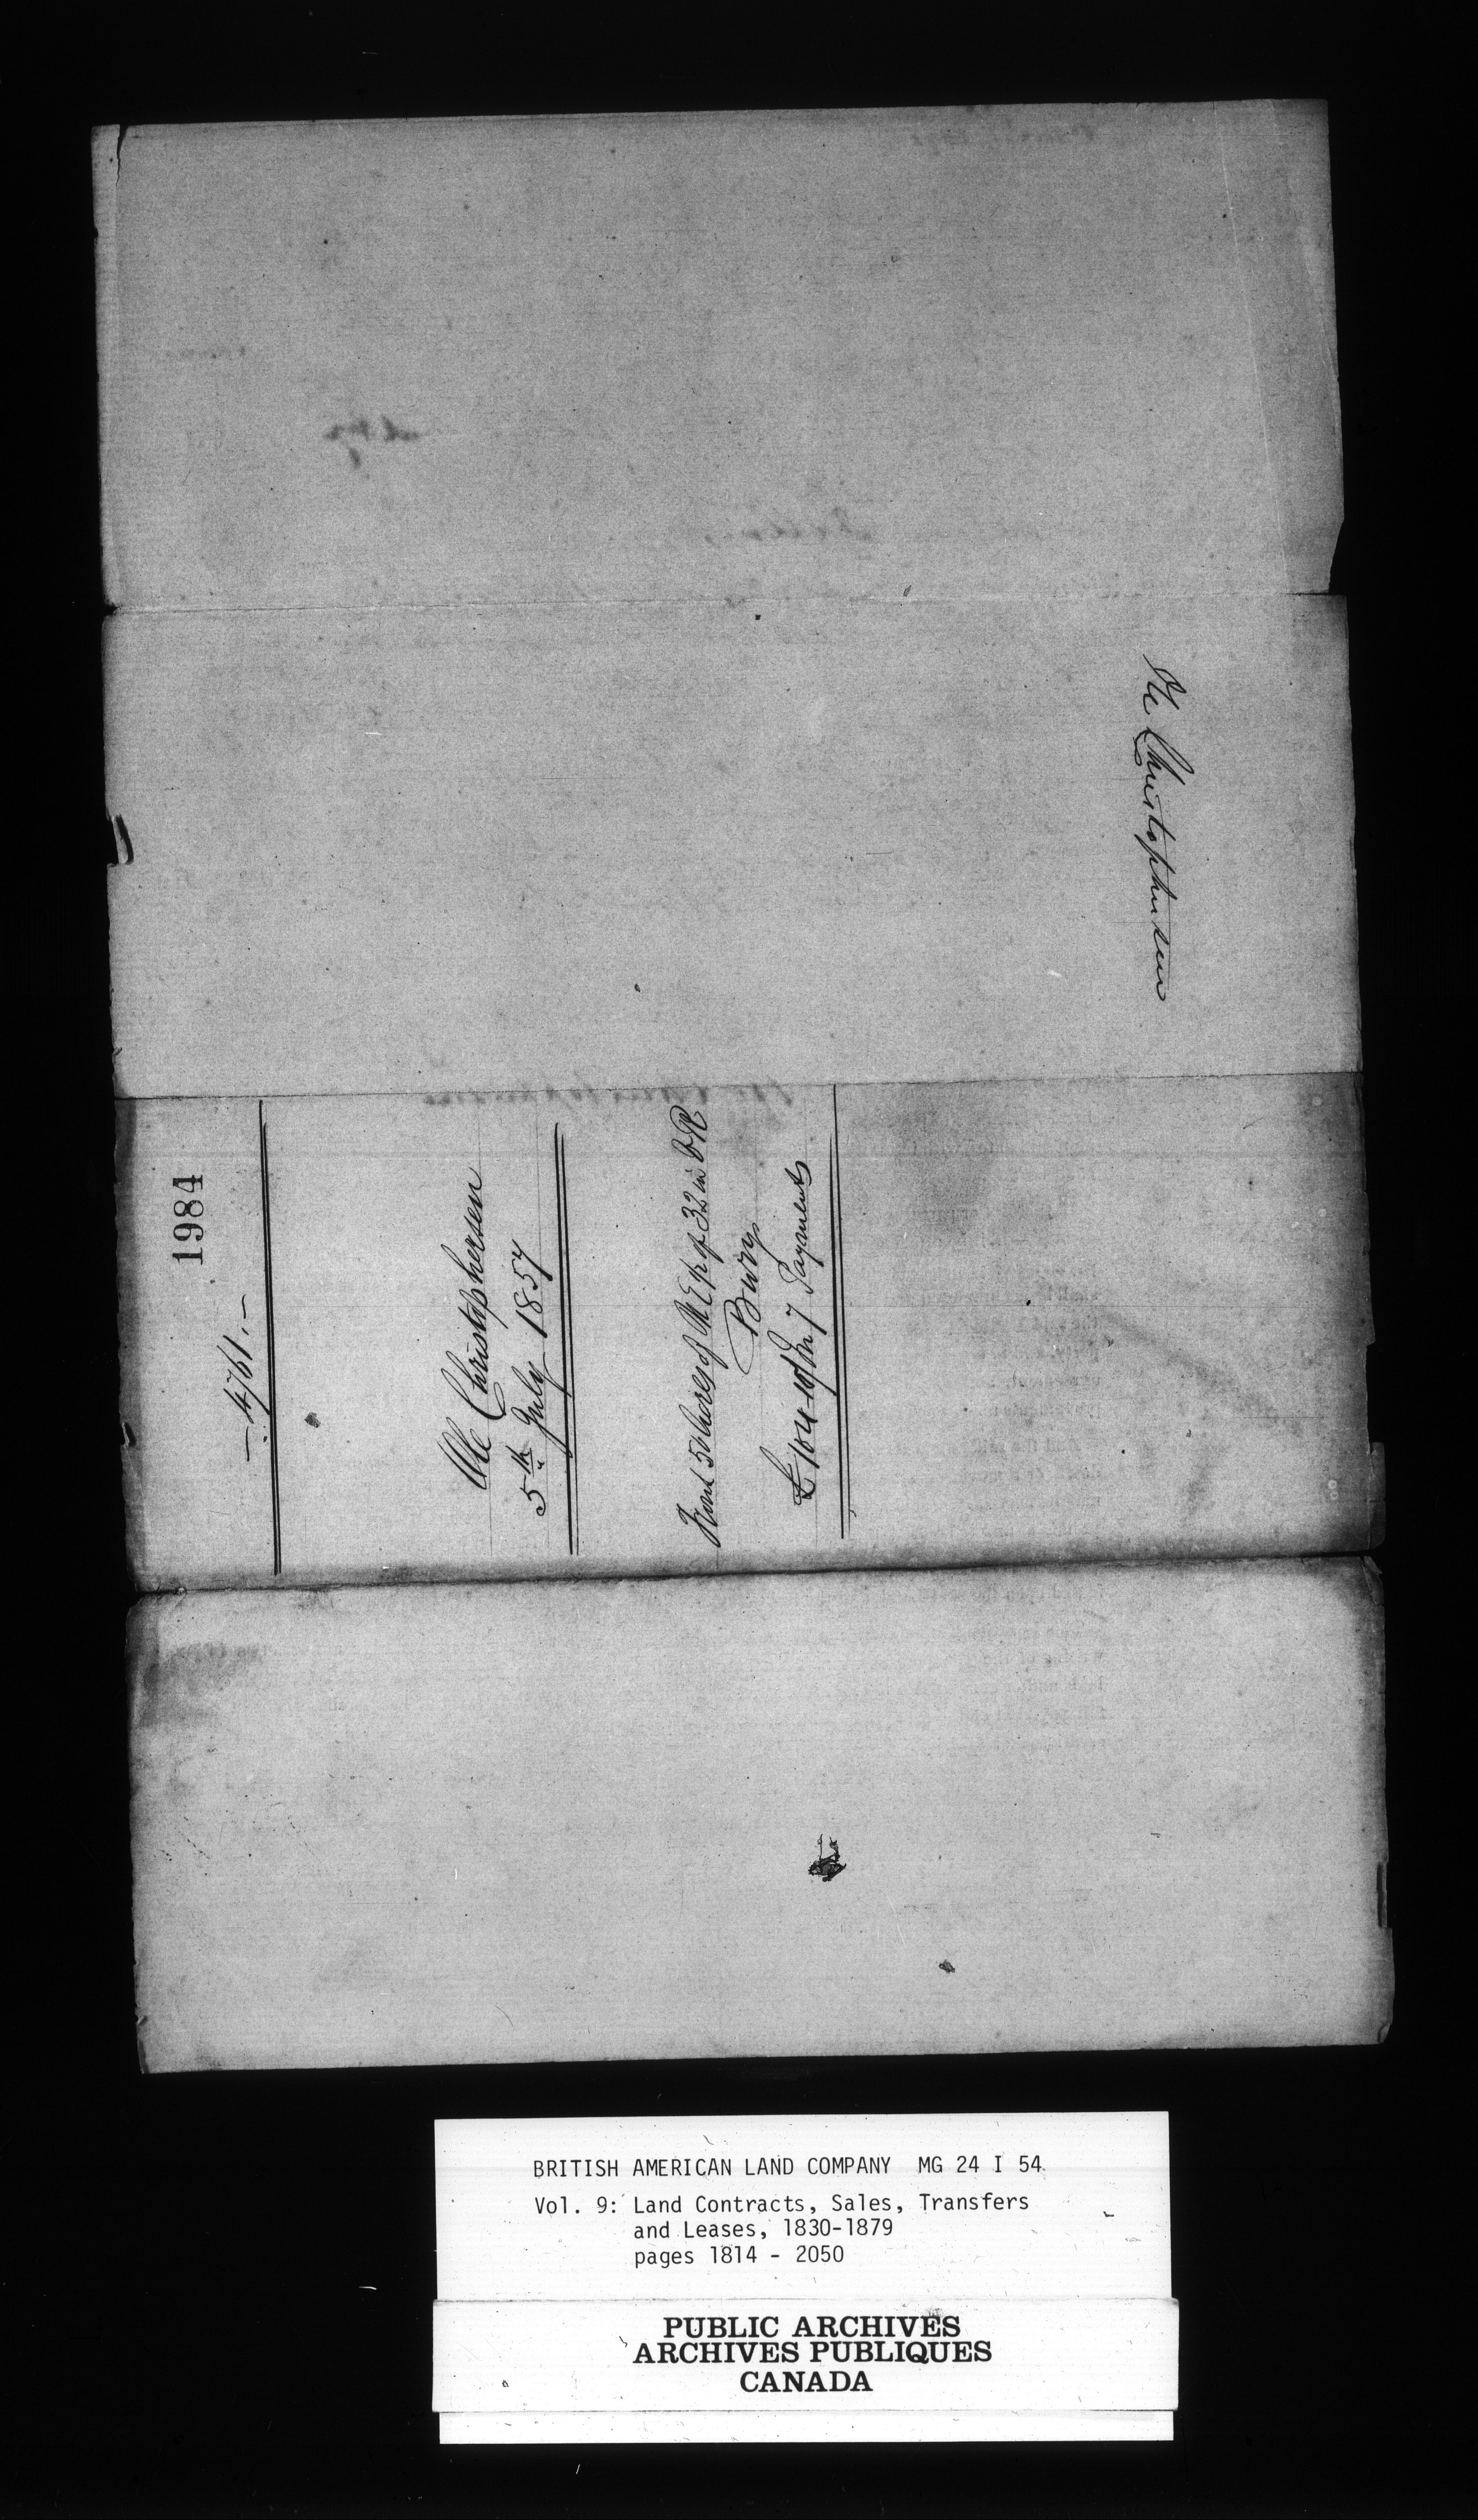 Ole Christophersen
1984
– 4761. –
Ole Christophersen
5th July 1857
50 Acres of N E pt of 32 in 6 R
Bury
£104-10/ In 7 Payments
BRITISH AMERICAN LAND COMPANY MG 24 I 54
Vol. 9: Land Contracts, Sales, Transfers
and Leases, 1830-1879
pages 1814 - 2050
PUBLIC ARCHIVES
ARCHIVES PUBLIQUES
CANADA